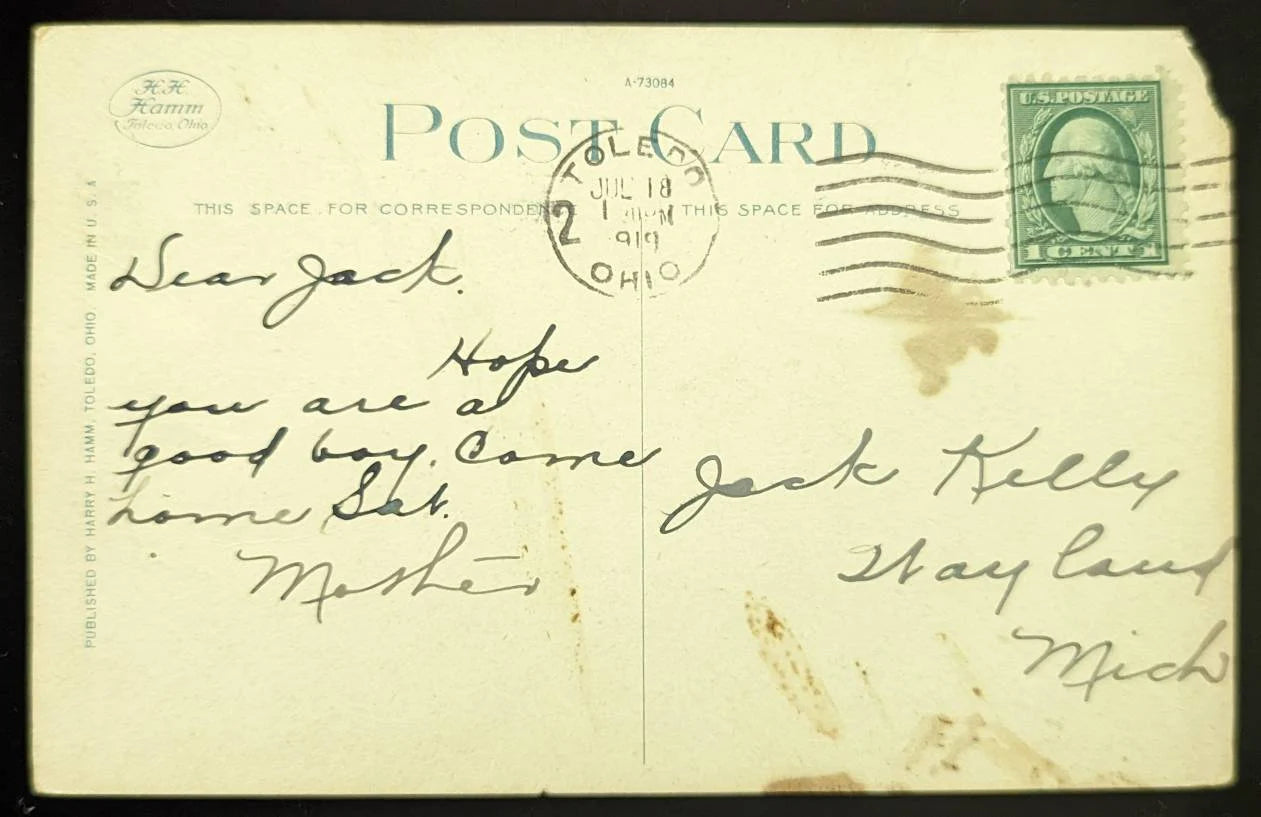 H.H.
Hamm
Toledo, Ohio
A-73084
POST CARD
THIS SPACE FOR CORRESPONDENCE
THIS SPACE FOR ADDRESS
TOLEDO
JUL 18
1 PM
1919
OHIO
2
U.S. POSTAGE
1 CENT 1
PUBLISHED BY HARRY H. HAMM, TOLEDO, OHIO. MADE IN U. S. A
Dear Jack.
Hope
you are a
good boy. Come
home Sat.
Mother
Jack Kelly
Wayland
Mich